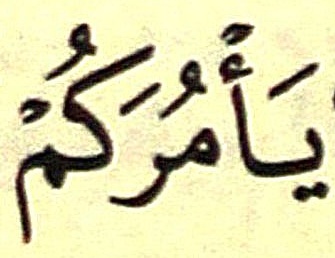 يَأْمُرَكُمْ